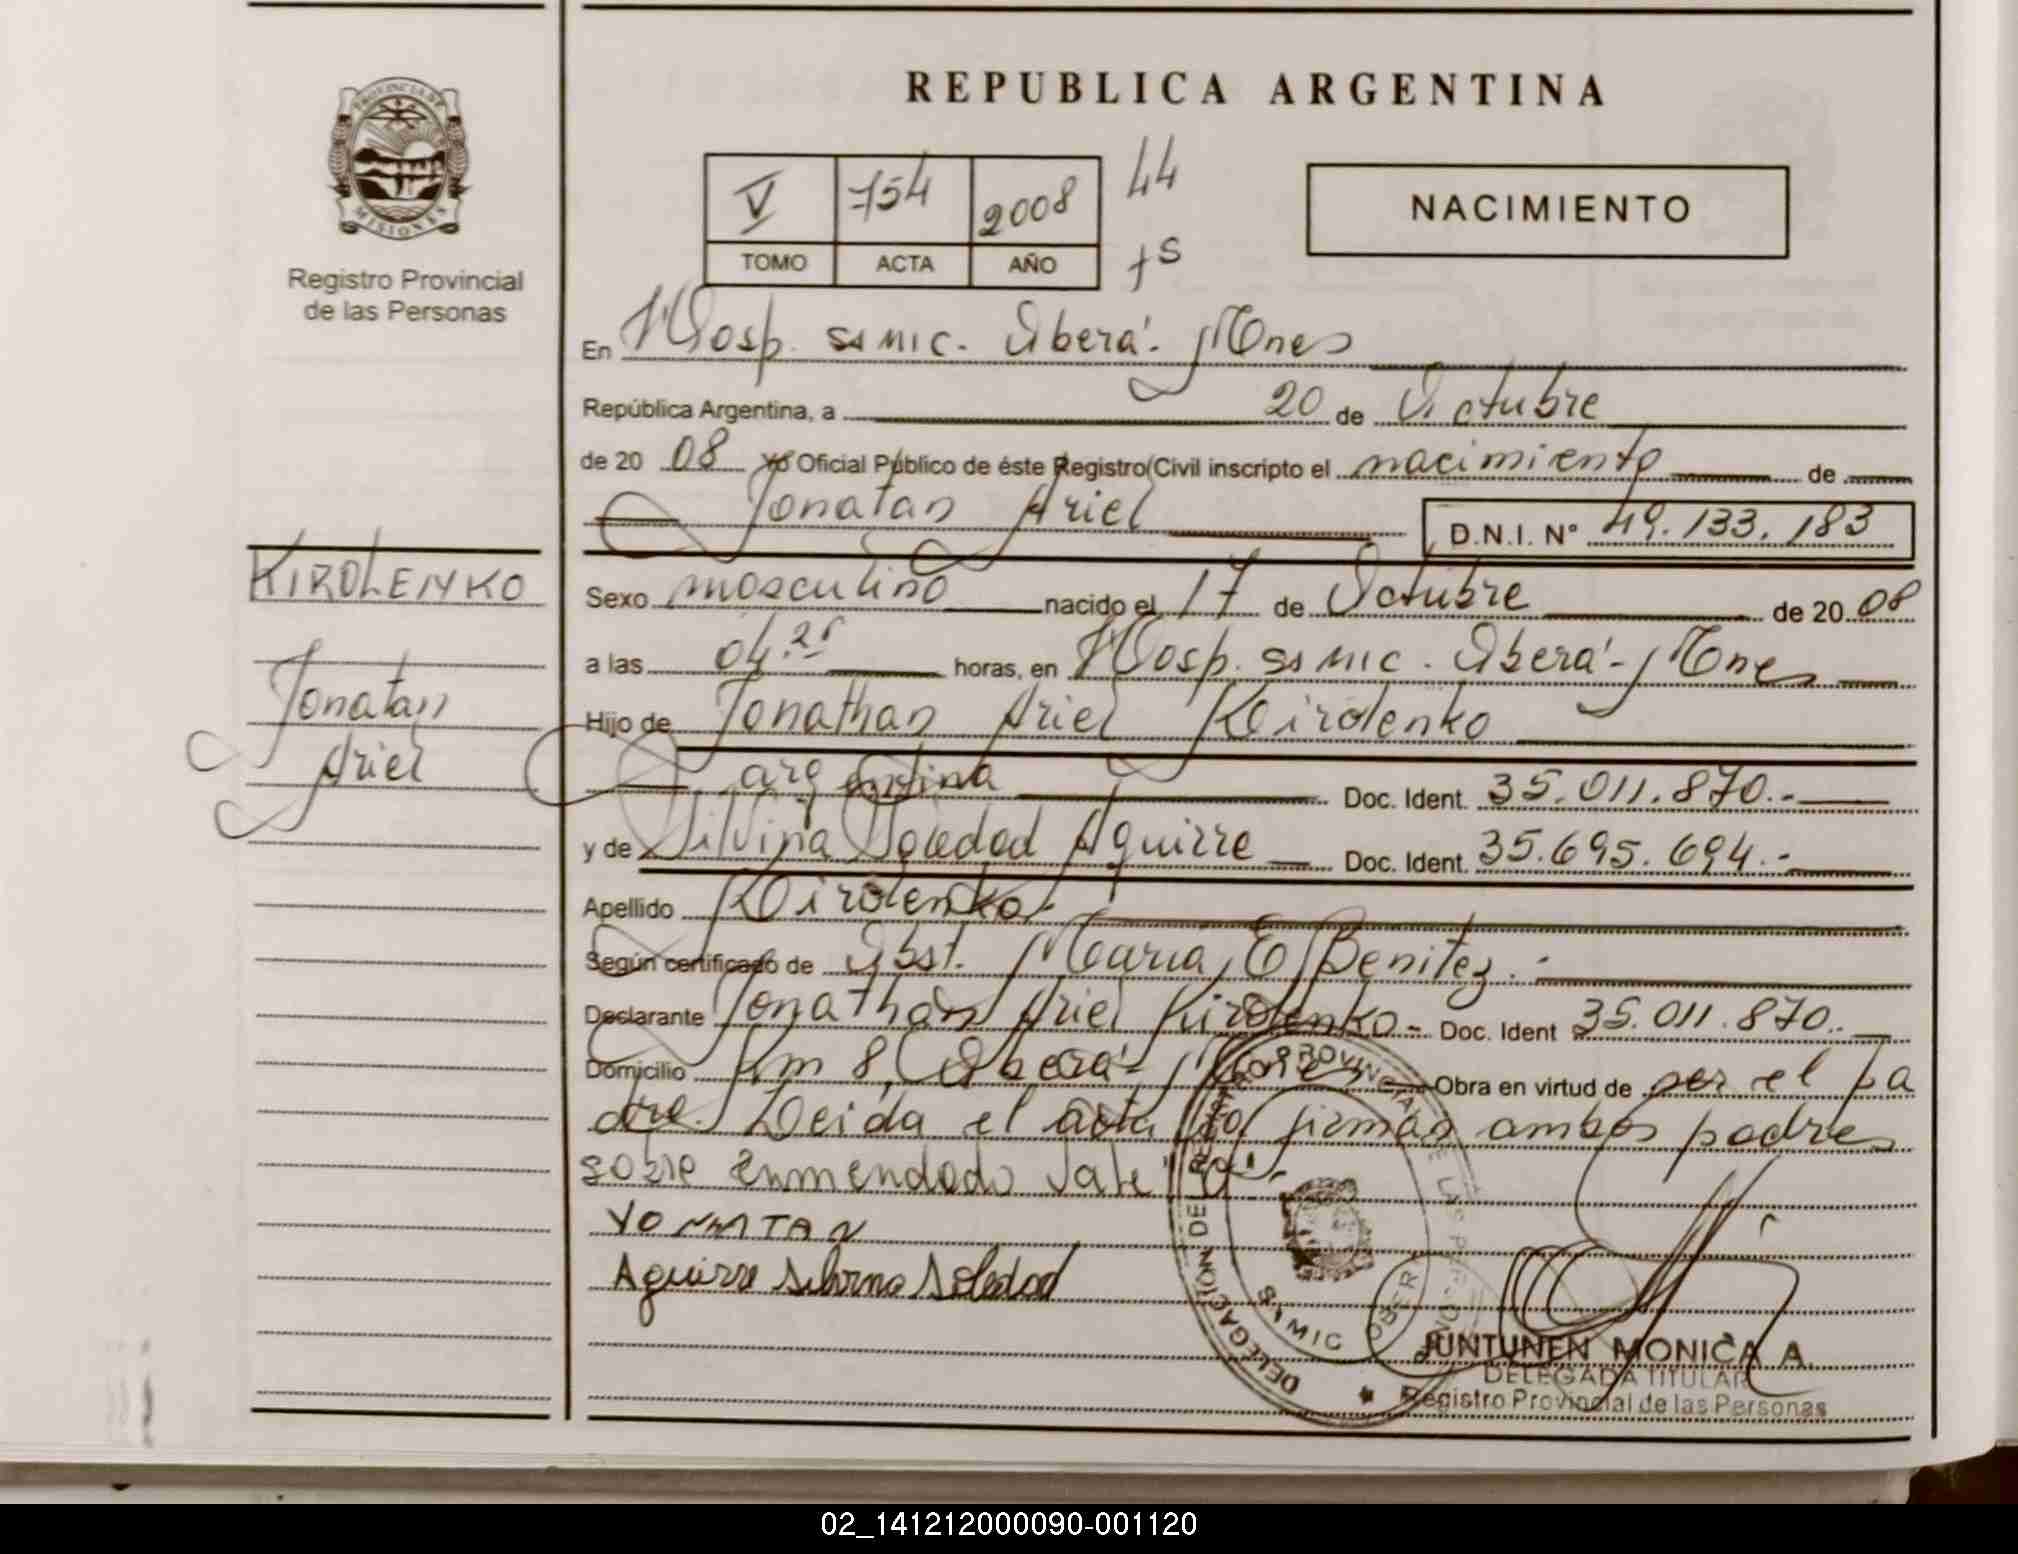 REPUBLICA ARGENTINA
PROVINCIA DE
MISIONES
Registro Provincial
de las Personas
V 754 2008 44
TOMO ACTA AÑO
NACIMIENTO
En Hosp. samic. Oberá. Mnes
República Argentina, a 20 de Octubre
de 20 08 Yo Oficial Público de éste Registro Civil inscripto el nacimiento de
Jonatan Ariel D.N.I. N° 49.133.183
KIROLENKO
Jonatan
Ariel
Sexo masculino nacido el 17 de Octubre de 20 08
a las 04.25 horas, en Hosp. samic. Oberá- Mnes
Hijo de Jonathan Ariel Kirolenko
argentina Doc. Ident. 35.011.870.-
y de Silvina Soledad Aguirre Doc. Ident. 35.695.694.-
Apellido Kirolenko.
Según certificado de Obst. Maria E Benitez.-
Declarante Jonathan Ariel Kirolenko- Doc. Ident 35.011.870.
Domicilio Km 8, Oberá- Mnes Obra en virtud de ser el pa
dre. Leida el acta la firman ambos padres
sobre enmendado Vale
YONATAN
Aguirre Silvina Soledad
DELEGACIÓN DEL REGISTRO PROVINCIAL DE LAS PERSONAS
SAMIC OBERÁ
JUNTUNEN MONICA A.
DELEGADA TITULAR
Registro Provincial de las Personas
02_141212000090-001120